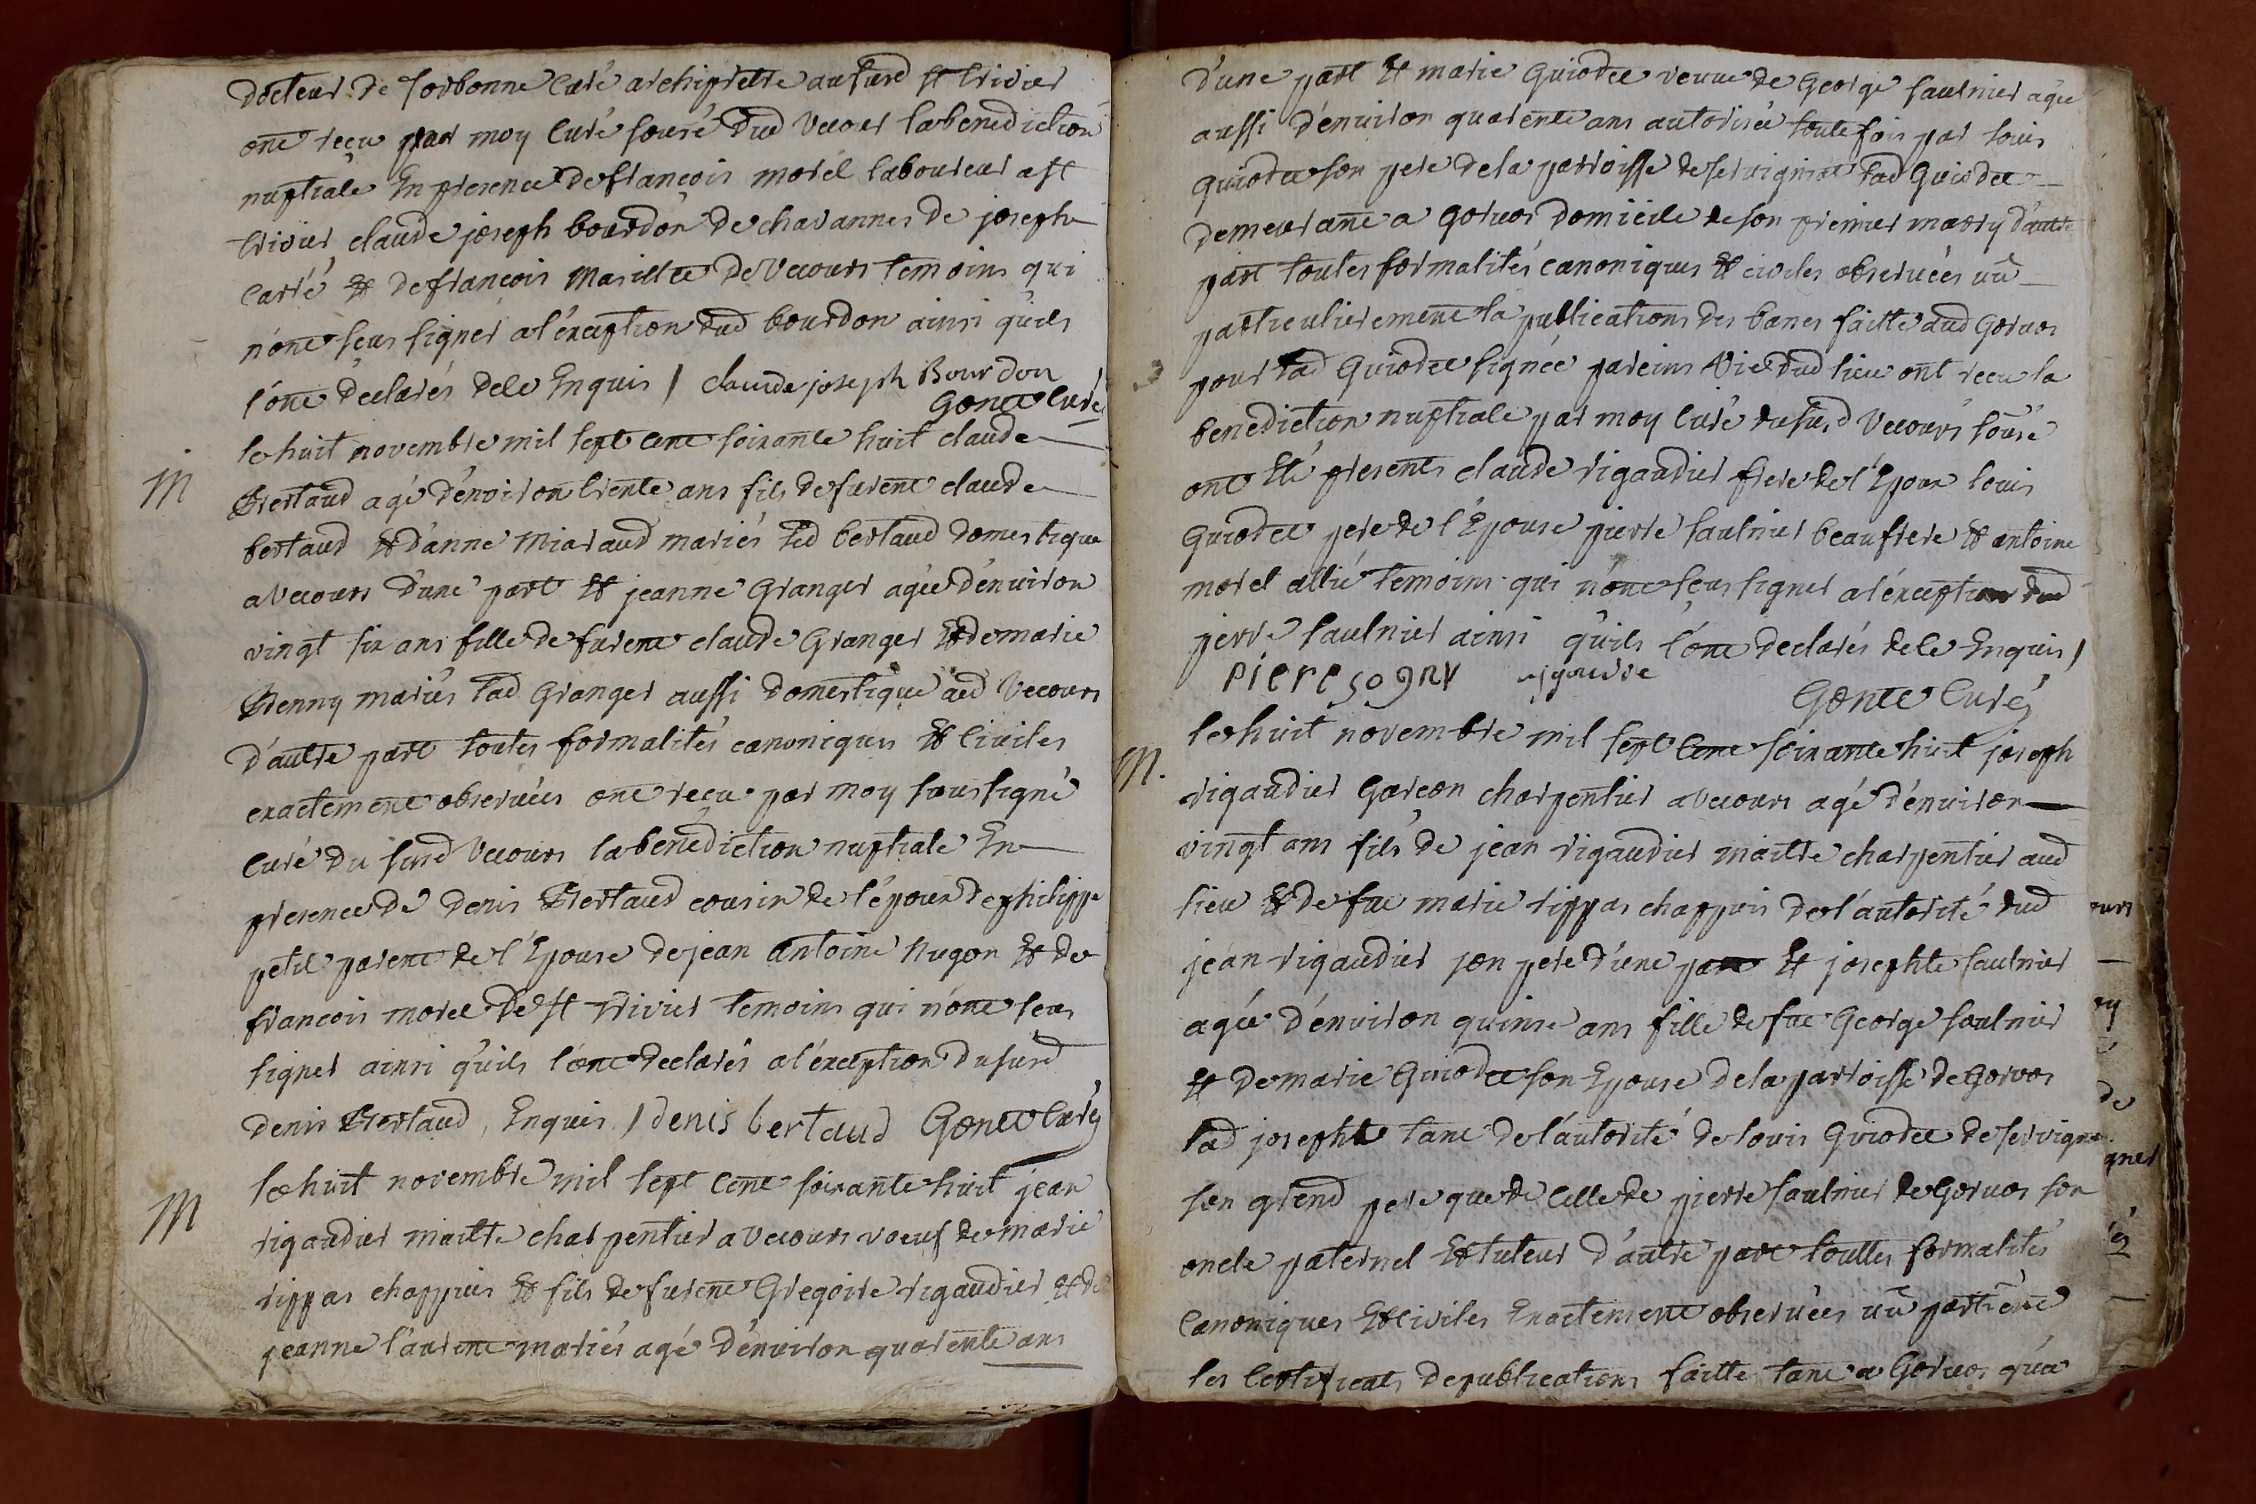 docteur de sorbonne Curé archiprettre au susd st trivier
ont reçu par moy Curé sousé dud Vecour la benediction
nuptiale En presence de françois morel laboureur a st
trivier claude joseph bourdon de chavannes de joseph
Carré & de françois Masillet de Vecours temoins qui
n'ont scus signer a l'éxception dud bourdon ainsi qu'ils
l'ont declarés de ce Enquis / claude joseph Bourdon
Gonet Curé
M le huit novembre mil sept cent soixante huit claude
Bertaud agé d'environ trente ans fils de furent claude
bertaud & d'anne Miaraud mariés led bertaud domestique
a Vecours d'une part & jeanne Granger agée d'environ
vingt six ans fille de furent claude Granger & de marie
Benny mariés lad Granger aussi domestique aud Vecours
d'autre part toutes formalités canoniques & Civiles
exactement observées ont reçu par moy soussigné
Curé du susd Vecours la bénédiction nuptiale En
presence de denis Bertaud cousin de l'époux de philippe
petit parent de l'Epouse de jean antoine Nugon & de
françois morel de st trivier temoins qui n'ont scus
signer ainsi qu'ils l'ont declarés a l'éxception du susd
denis Bertaud, Enquis / denis bertaud Gonet Curé
M le huit novembre mil sept Cent soixante huit jean
rigaudier maitre charpentier a Vecours voeuf de marie
rippas chappuis & fils de furent Gregoire rigaudier & de
jeanne laurent mariés agé d'environ quarente ans
d'une part & marie Guiodet veuve de George saulnier agée
aussi d'environ quarente ans autorisée toute fois par louis
Guiodet son pere de la parroisse de servignat lad Guiodet
demeurant a Gorvos domicile de son premier marry d'autre
part toutes formalités canoniques & civiles observées vû
particulierement la publications des bancs faitte aud Gorvos
pour lad Guiodet signée par eins Vic dud lieu ont reçu la
benediction nuptiale par moy Curé du susd Vecours sousé
ont Eté presents claude rigaudier frere de l'Epoux louis
Guiodet pere de l'Epouse pierre saulnier beaufrere & antoine
morel allié temoins qui n'ont scus signer a l'éxception dud
pierre saulnier ainsi qu'ils l'ont declarés de ce Enquis /
piere sogny
Gonet Curé
M. le huit novembre mil sept Cent soixante huit joseph
rigaudier Garcon charpentier a Vecours agé d'environ
vingt ans fils de jean rigaudier maitre charpentier aud
lieu & de fue marie rippas chappuis de l'autorité dud
jean rigaudier son pere d'une part & josephte saulnier
agée d'environ quinse ans fille de fue George saulnier
& de marie Guiodet son Epouse de la parroisse de Gorvos
lad josephte tant de l'autorité de louis Guiodet de servignat
son grend pere que de Celle de pierre saulnier de Gorvos son
oncle paternel & tuteur d'autre part toutes formalités
Canoniques & Civiles Exactement observées vû partient
les Certificats de publications faitte tant a Gorvos qu'a